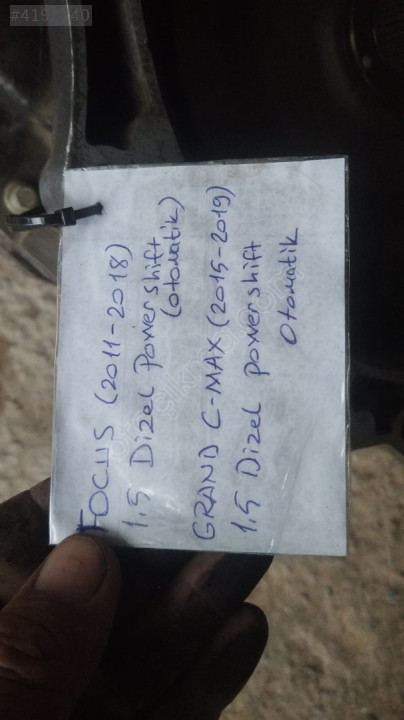 FOCUS (2011-2018)
1.5 Dizel Powershift
(otomatik)
GRAND C-MAX (2015-2019)
1.5 Dizel powershift
otomatik